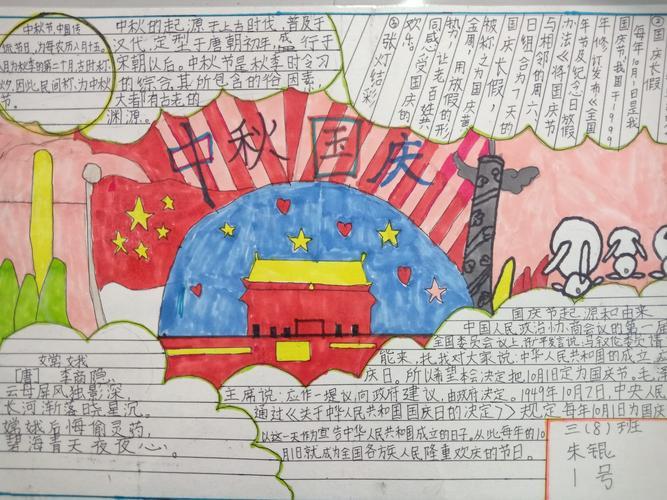 中秋节,中国传
统节日,为每农历八月十五,
八月为秋季的第二个月,古时称
夕,因此,民间称,为中秋
节。
中秋的起源于上古时代,普及于
汉代,定型于唐朝初年,盛行于
宋朝以后。中秋节是秋季时令习
的综合,其所包含的俗因素,
大都有古老的
渊源。
②国庆长假
每年10月1日是我
国庆节,我国于1999
年修订发布《全国
年节及纪念日放假
办法》将国庆节
与相邻的周六、
日组合为7天的
国庆长假,
被称之为国庆黄
金周,用放假的形
势,让老百姓共
同感受国庆的
欢
③张灯结彩
中秋国庆
嫦娥
[唐] 李商隐
云母屏风烛影深,
长河渐落晓星沉。
嫦娥应悔偷灵药,
碧海青天夜夜心。
国庆节起源和由来
中国人民政治协商会议的第一
全国委员会议上,许广平发言说,马叙伦委员请
能来,托我对大家说:中华人民共和国的成立
庆日。所以希望本会决定把10月1日定为国庆节,毛泽
主席说:应作一提议,向政府建议,由政府决定。1949年10月2日,中央人
通过《关于中华人民共和国国庆日的决定》规定每年10月1日为国庆
以这一天作为宣告中华人民共和国成立的日子。从此,每年的10
月1日就成为全国各族人民隆重欢庆的节日。
三(8)班
朱锟
1号